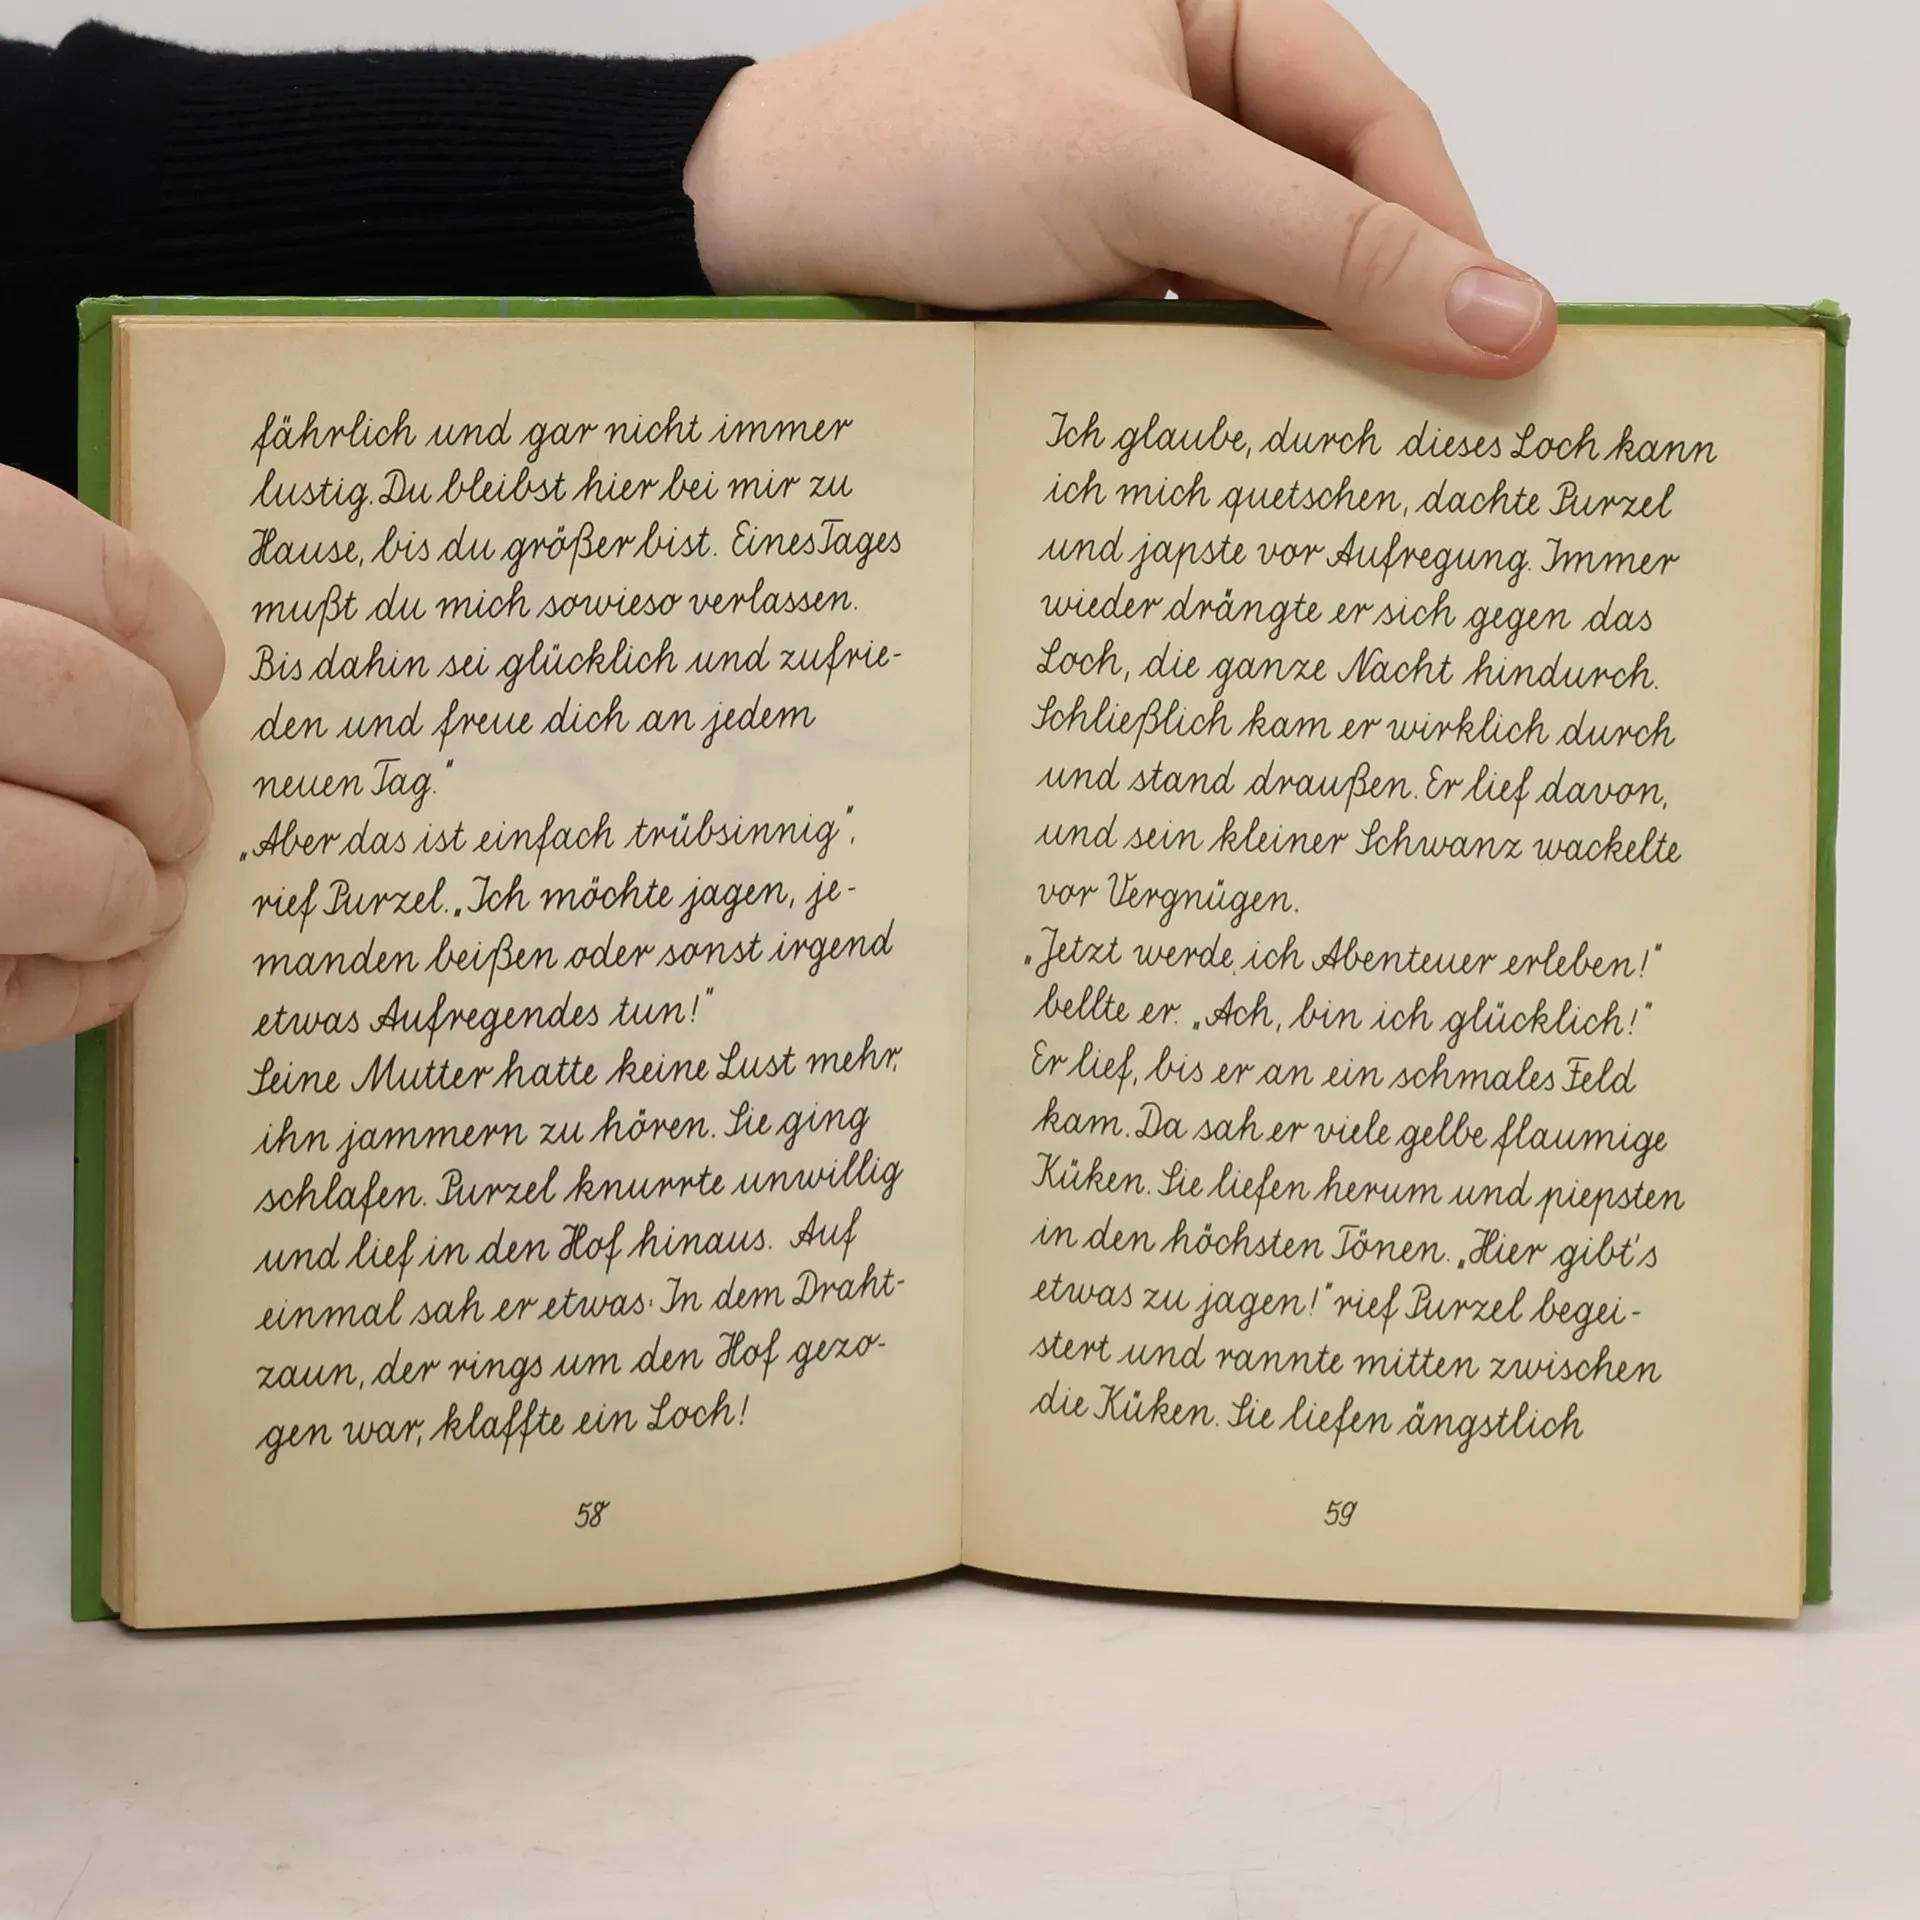 fährlich und gar nicht immer
lustig. Du bleibst hier bei mir zu
Hause, bis du größer bist. Eines Tages
mußt du mich sowieso verlassen.
Bis dahin sei glücklich und zufrie-
den und freue dich an jedem
neuen Tag."
„Aber das ist einfach trübsinnig",
rief Purzel. „Ich möchte jagen, je-
manden beißen oder sonst irgend
etwas Aufregendes tun!"
Seine Mutter hatte keine Lust mehr,
ihn jammern zu hören. Sie ging
schlafen. Purzel knurrte unwillig
und lief in den Hof hinaus. Auf
einmal sah er etwas: In dem Draht-
zaun, der rings um den Hof gezo-
gen war, klaffte ein Loch!
58
Ich glaube, durch dieses Loch kann
ich mich quetschen, dachte Purzel
und japste vor Aufregung. Immer
wieder drängte er sich gegen das
Loch, die ganze Nacht hindurch.
Schließlich kam er wirklich durch
und stand draußen. Er lief davon,
und sein kleiner Schwanz wackelte
vor Vergnügen.
„Jetzt werde ich Abenteuer erleben!"
bellte er. „Ach, bin ich glücklich!"
Er lief, bis er an ein schmales Feld
kam. Da sah er viele gelbe flaumige
Küken. Sie liefen herum und piepsten
in den höchsten Tönen. „Hier gibt's
etwas zu jagen!" rief Purzel begei-
stert und rannte mitten zwischen
die Küken. Sie liefen ängstlich
59